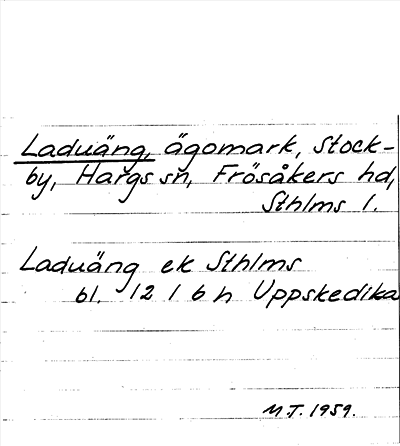 Laduäng, ägomark, Stock-
by, Hargs sn, Frösåkers hd,
Sthlms l.
Laduäng ek Sthlms
bl. 12 l 6 h Uppskedika
M.J. 1959.